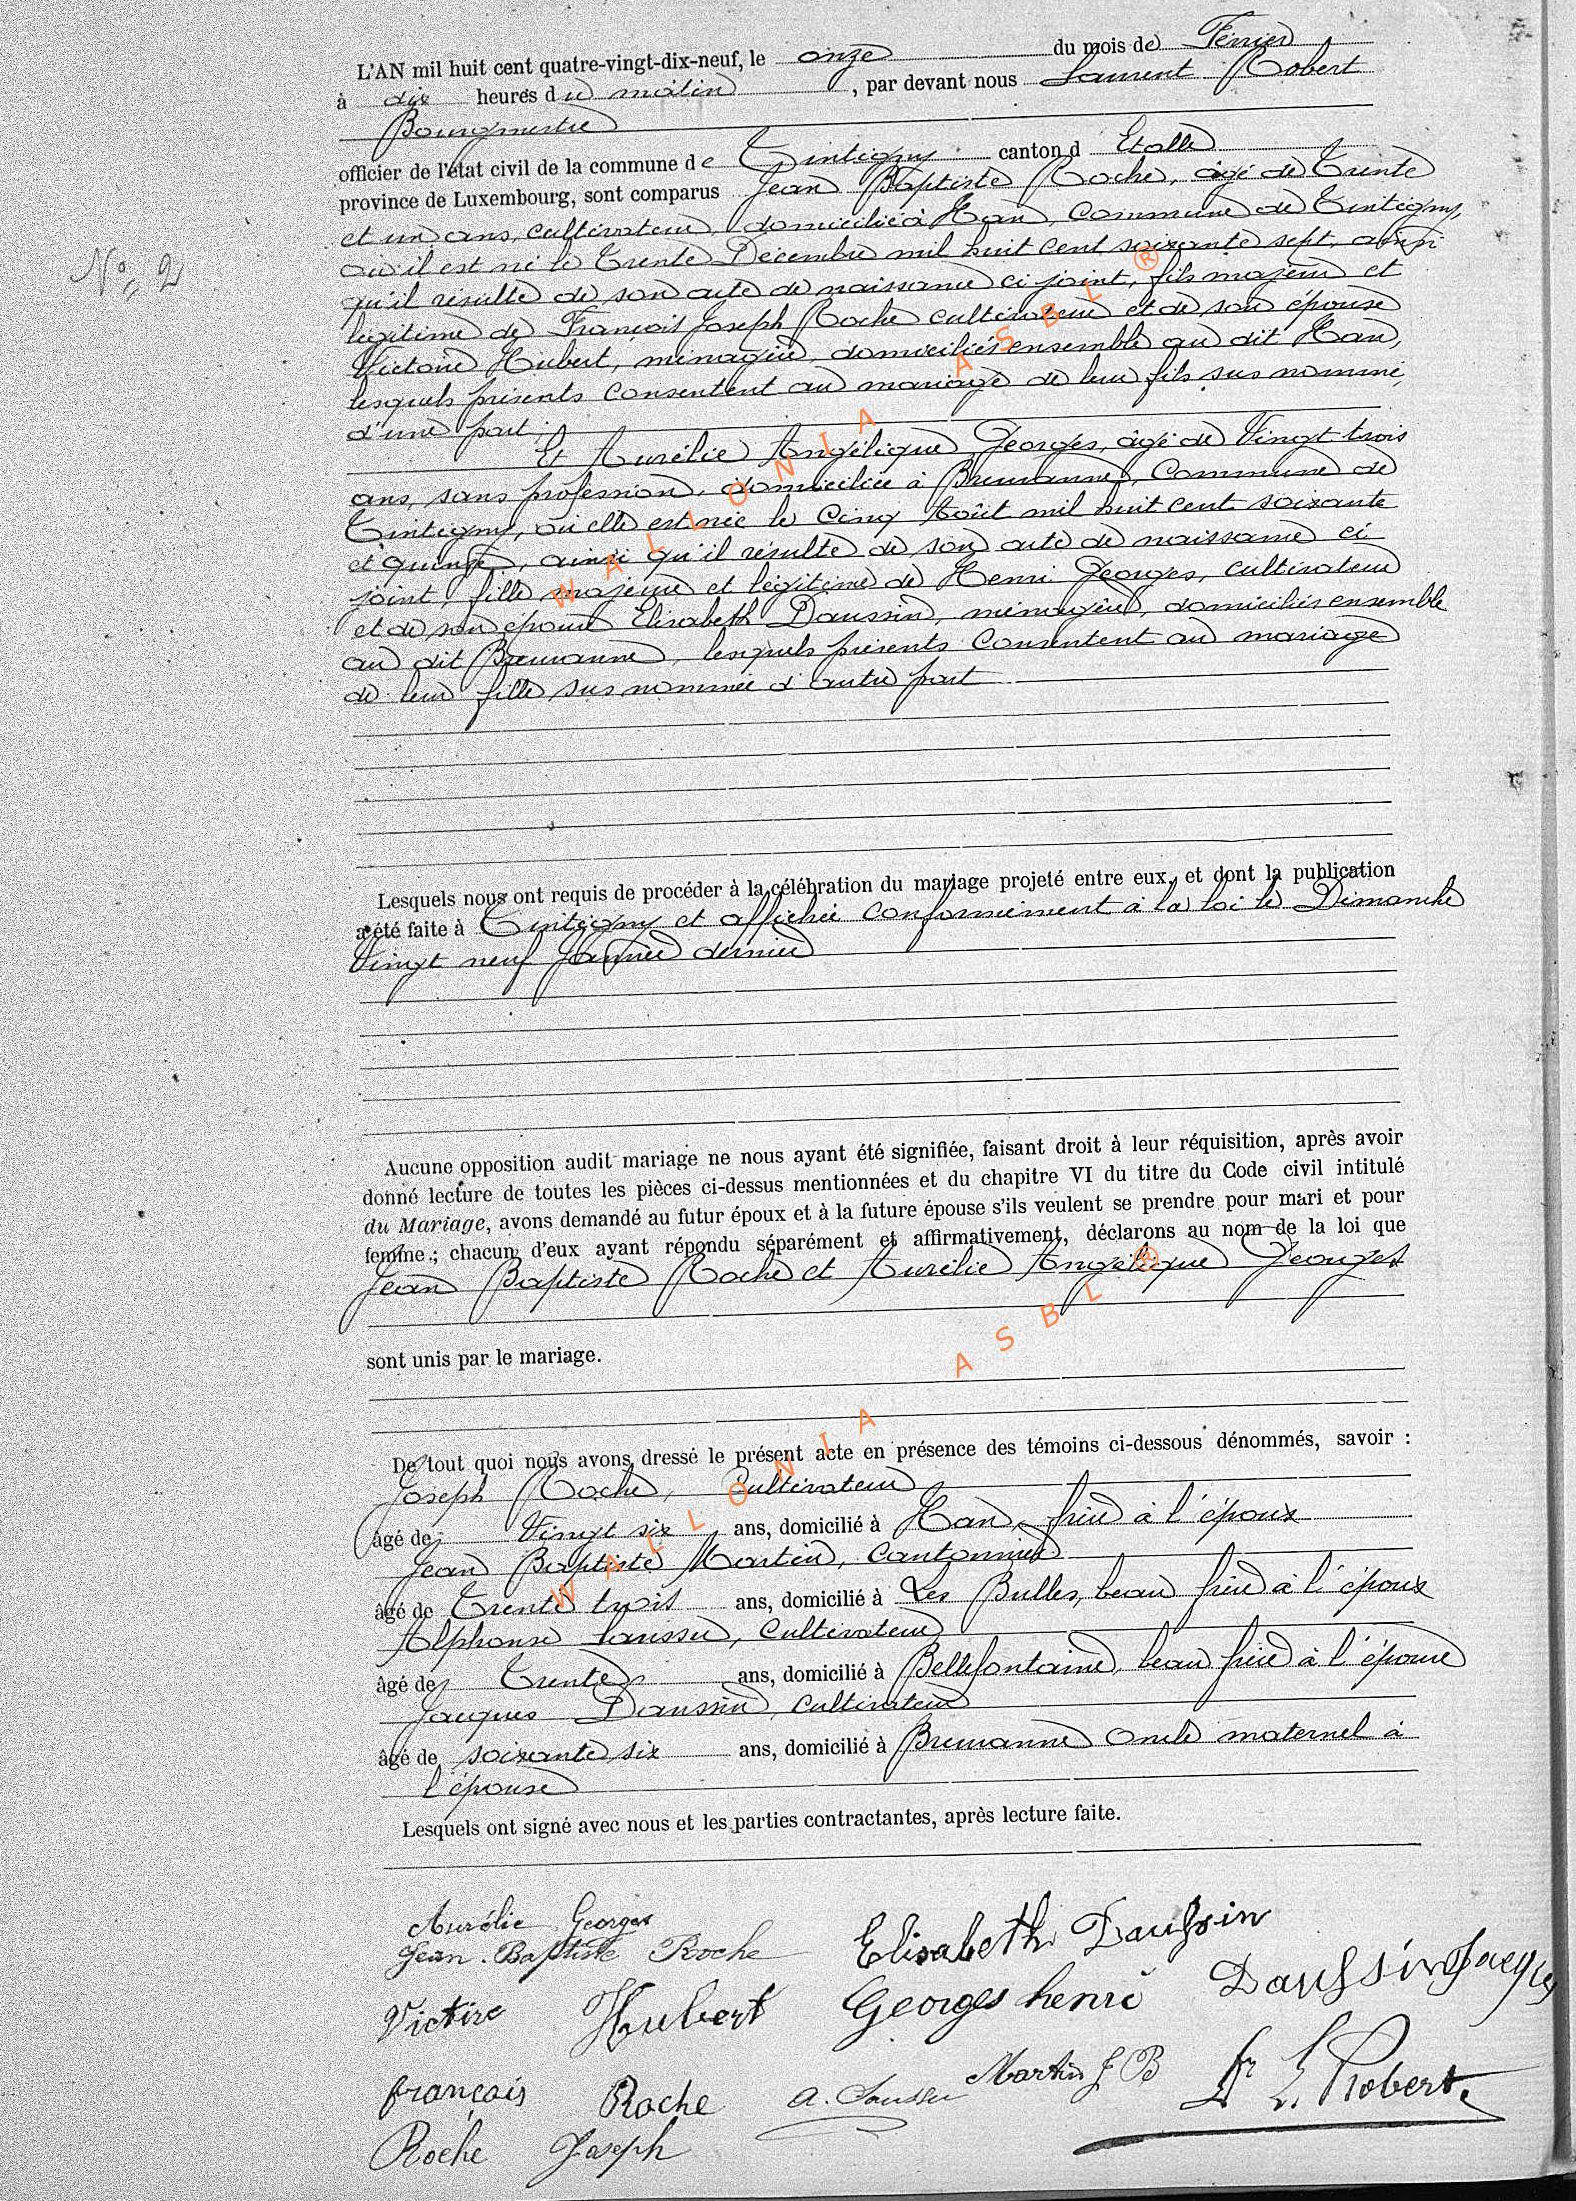 L'AN mil huit cent quatre-vingt-dix-neuf, le onze du mois de Février
à dix heures du matin, par devant nous Laurent Robert
Bourgmestre
officier de l'état civil de la commune de Tintigny canton d Etalle
province de Luxembourg, sont comparus Jean Baptiste Roche, âgé de Trente
et un ans, cultivateur, domicilié à Han, Commune de Tintigny,
où il est né le Trente Décembre mil huit cent soixante sept, ainsi
qu'il résulte de son acte de naissance ci joint, fils majeur et
légitime de François Joseph Roche cultivateur et de son épouse
Victoire Hubert, ménagère, domiciliés ensemble au dit Han,
lesquels présents consentent au mariage de leur fils sus nommé,
d'une part.
Et Aurélie Angélique Georges, âgé de Vingt trois
ans, sans profession, domiciliée à Breuvanne, Commune de
Tintigny, où elle est née le Cinq Août mil huit cent soixante
et quinze, ainsi qu'il résulte de son acte de naissance ci
joint, fille majeure et légitime de Henri Georges, cultivateur
et de son épouse Elisabeth Daussin, ménagère, domiciliés ensemble
au dit Breuvanne, lesquels présents Consentent au mariage
de leur fille sus nommée d'autre part
N° 2
Lesquels nous ont requis de procéder à la célébration du mariage projeté entre eux, et dont la publication
a été faite à Tintigny et affichée conformément à la loi le Dimanche
Vingt neuf Janvier dernier
Aucune opposition audit mariage ne nous ayant été signifiée, faisant droit à leur réquisition, après avoir
donné lecture de toutes les pièces ci-dessus mentionnées et du chapitre VI du titre du Code civil intitulé
du Mariage, avons demandé au futur époux et à la future épouse s'ils veulent se prendre pour mari et pour
femme ; chacun d'eux ayant répondu séparément et affirmativement, déclarons au nom de la loi que
Jean Baptiste Roche et Aurélie Angélique Georges
sont unis par le mariage.
De tout quoi nous avons dressé le présent acte en présence des témoins ci-dessous dénommés, savoir :
Joseph Roche, Cultivateur
âgé de Vingt six ans, domicilié à Han, frère à l'époux
Jean Baptiste Martin, Cantonnier
âgé de Trente trois ans, domicilié à Les Bulles, beau frère à l'époux
Alphonse Saussu, Cultivateur
âgé de Trente ans, domicilié à Bellefontaine, beau frère à l'épouse
Jacques Daussin, Cultivateur
âgé de soixante six ans, domicilié à Breuvanne Oncle maternel à
l'épouse
Lesquels ont signé avec nous et les parties contractantes, après lecture faite.
Aurélie Georges
Jean-Baptiste Roche Elisabeth Daussin
Victire Hubert Georges henri Daussin Jacques
françois Roche A. Saussu Martin J B L. Robert
Roche Joseph
WALLONIA ASBL ®
WALLONIA ASBL ®